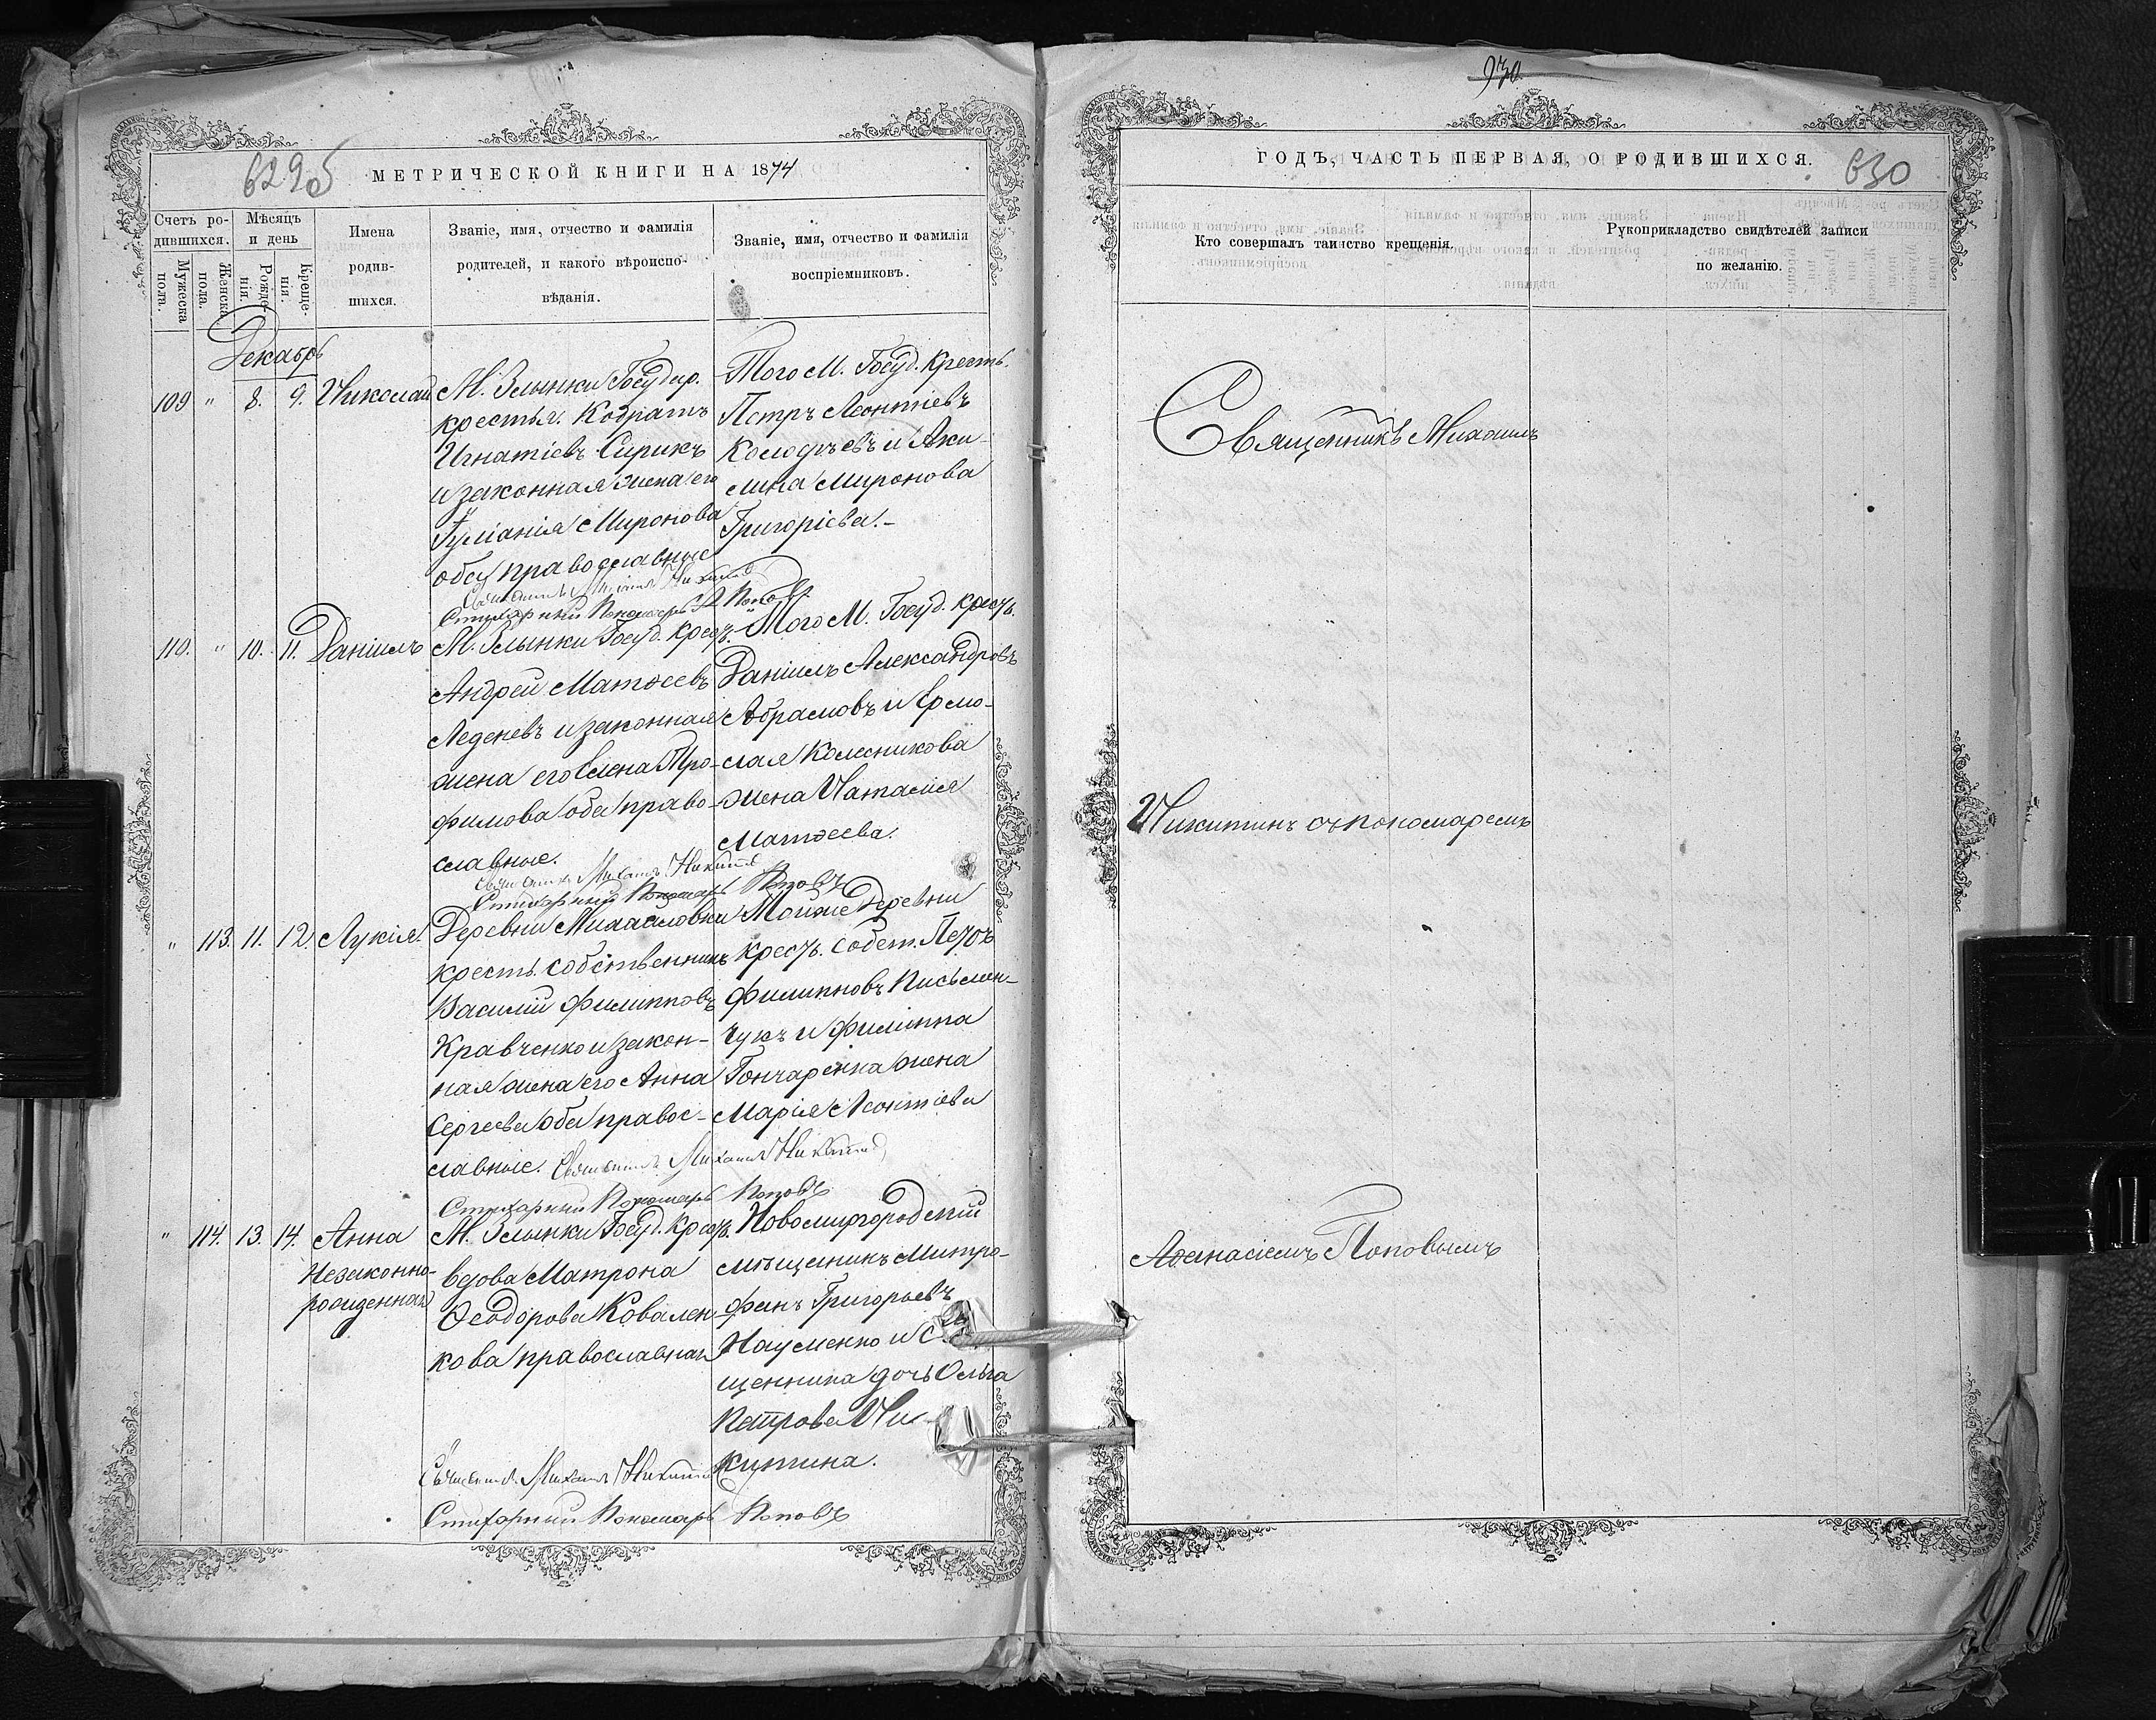 629об
МЕТРИЧЕСКОЙ КНИГИ НА 1874
Счетъ ро-
дившихся.
Мужеска
пола.
Женска
пола.
Мѣсяцъ
и день
Рожде-
нія.
Креще-
нія.
Имена
родив-
шихся.
Званіе, имя, отчество и фамилія
родителей, и какого вѣроиспо-
вѣданія.
Званіе, имя, отчество и фамилія
воспріемниковъ.
Декабрь
109 " 8. 9. Николай
М. Злынки Государ.
крестья. Кодратъ
Игнатіевъ Сирикъ
и законная жена его
Гуліанія Миронова
оба православные
Того М. Госуд. Кресть.
Петръ Леонтіевъ
Колодѣевъ и Аки-
лина Миронова
Григоріева.-
Священникъ Михаилъ Никитинъ
Стихарный Пономарь А. Поповъ
110. " 10. 11. Даніилъ
М. Злынки Госуд. Крест.
Андрей Матѳеевъ
Леденевъ и законная
жена его Елена Тро-
фимова оба право-
славные.
Того М. Госуд. крест.
Даніилъ Александровъ
Абрамовъ и Ермо-
лая Колесникова
жена Наталія
Матѳеева.
Священникъ Михаилъ Никитинъ
Стихарный Пономарь Поповъ
" 113. 11. 12. Лукія.
Деревни Михайловки
кресть. собственникъ
Василій Филипповъ
Кравченко и закон-
ная жена его Анна
Сергеева оба правос-
славные.
Той же Деревни
крест. собст. Петръ
Филипповъ Письмен-
чукъ и Филиппа
Гончаренка жена
Марія Леонтіева
Священникъ Михаилъ Никитинъ
Стихарный Пономарь Поповъ
" 114. 13. 14. Анна
Незаконно-
рожденная
М. Злынки Госуд. Крест.
вдова Матрона
Ѳеодорова Ковален-
кова православная
Новомиргородскій
мѣщанинъ Митро-
фанъ Григорьевъ
Науменко и С
щенника дочь Ольга
Петрова Ни-
китина.
Священникъ Михаилъ Никитинъ
Стихарный Пономарь Поповъ
930
ГОДЪ, ЧАСТЬ ПЕРВАЯ, О РОДИВШИХСЯ.
630
Кто совершалъ таинство крещенія.
Рукоприкладство свидѣтелей записи
по желанію.
Священникъ Михаилъ
Никитинъ съ пономаремъ
Аѳанасіемъ Поповымъ